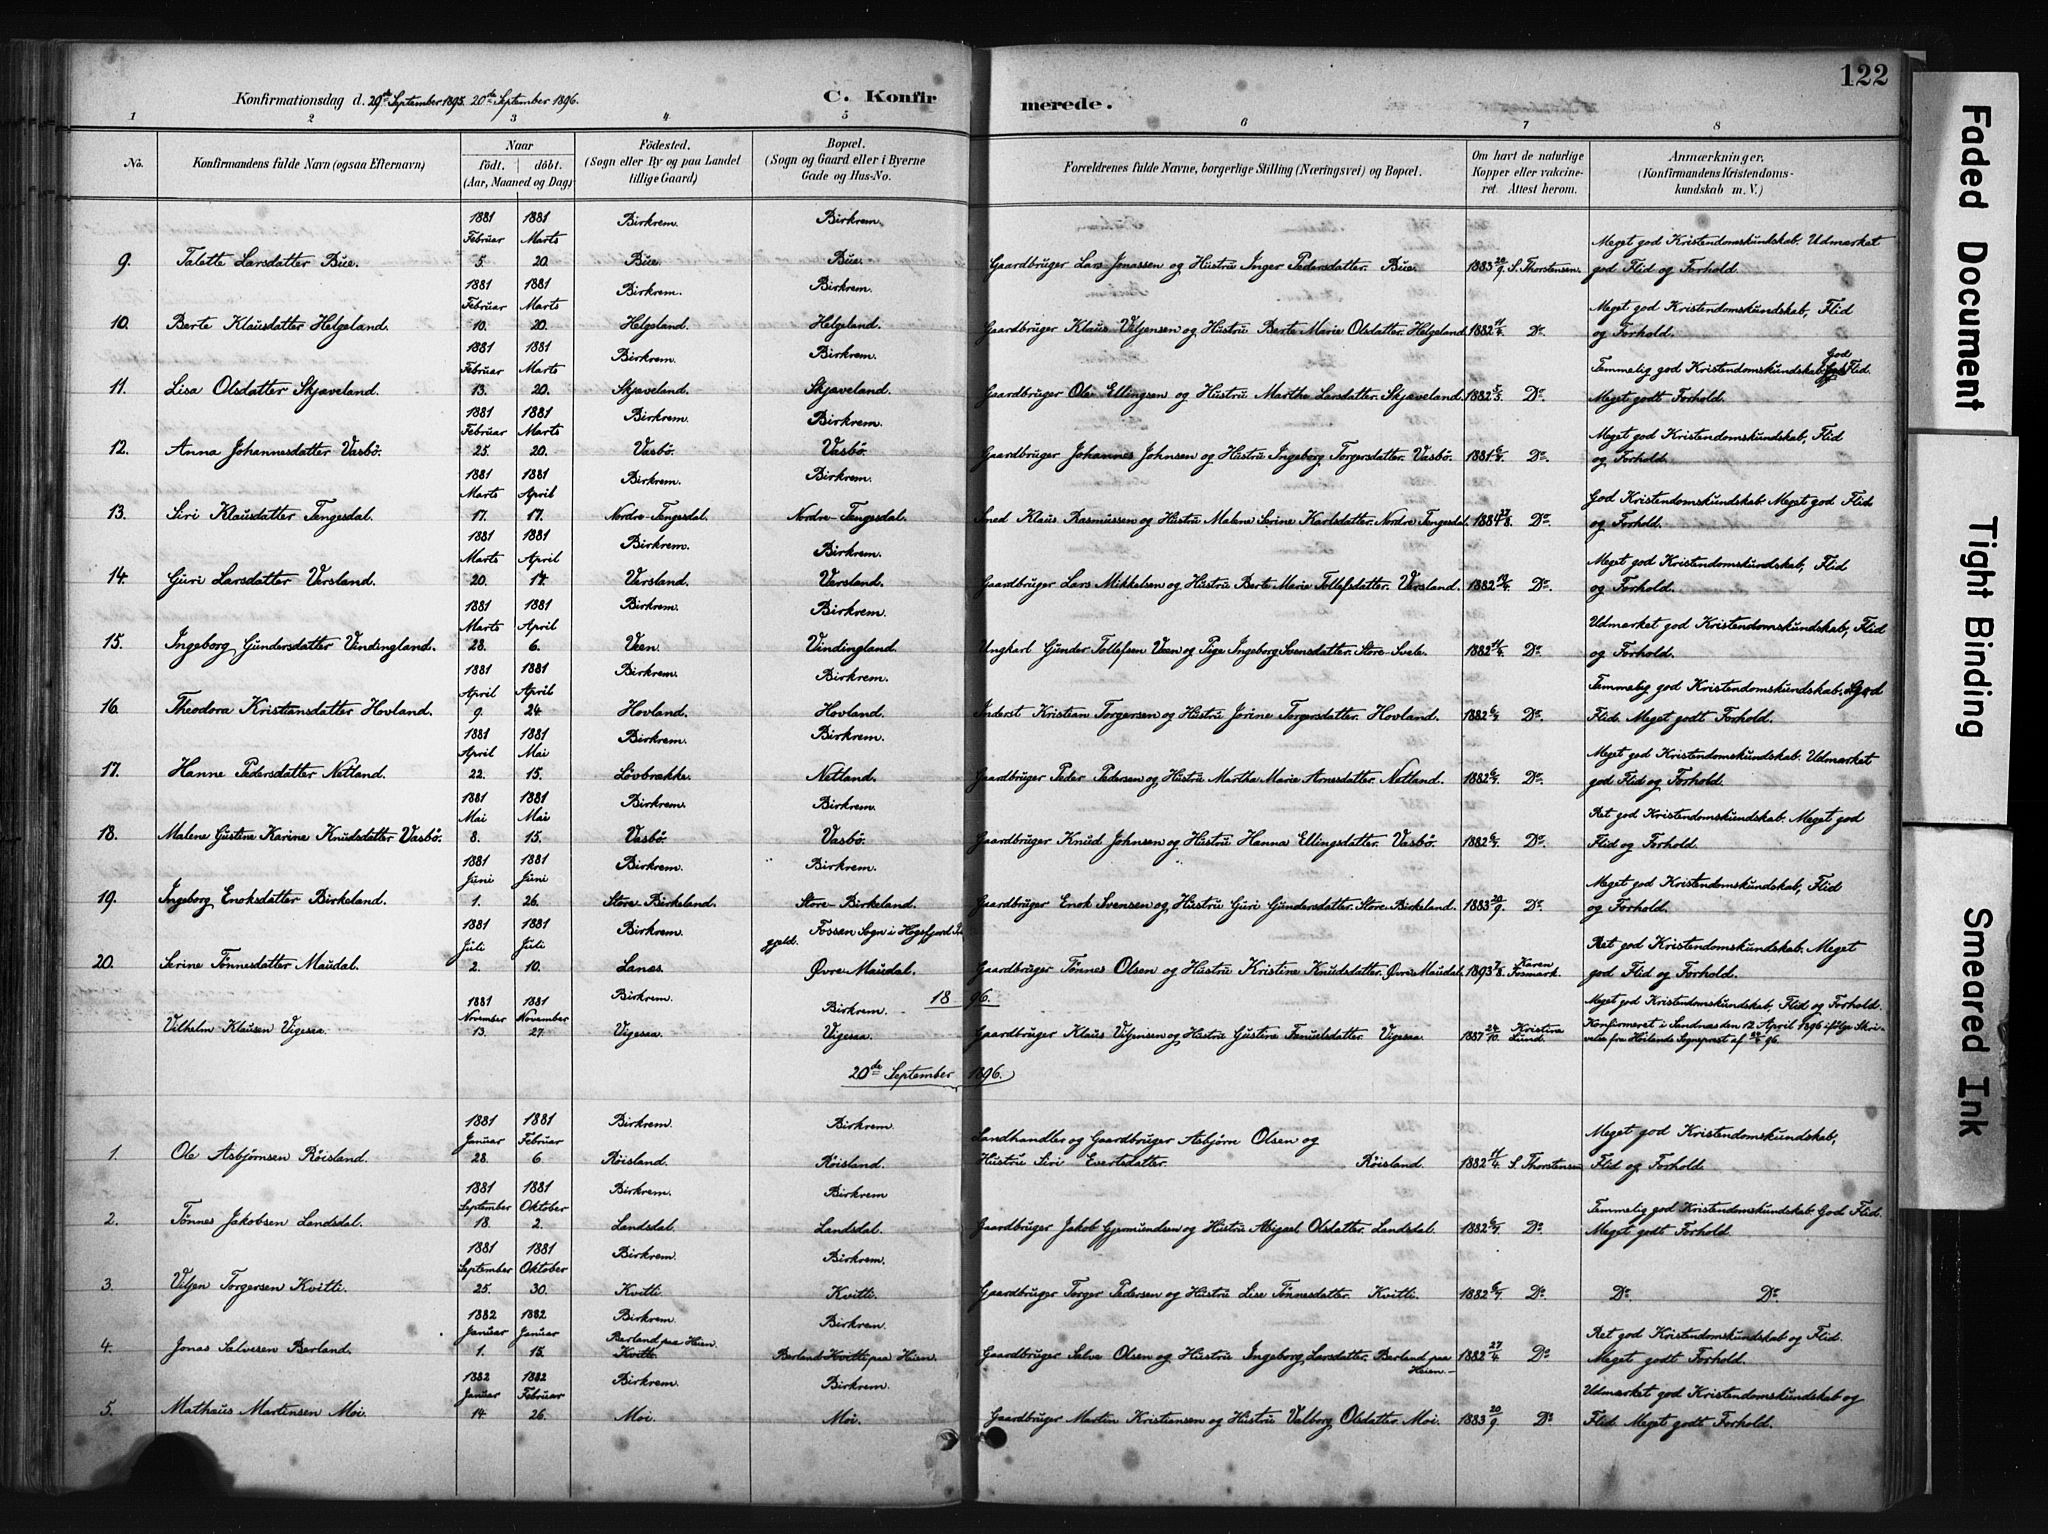 122
Konfirmationsdag d. 29de September 1895. 20de September 1896. C. Konfirmerede.
1 2 3 4 5 6 7 8
No. Konfirmandens fulde Navn (ogsaa Efternavn) Naar født. døbt. (Aar, Maaned og Dag) Födested. (Sogn eller By og paa Landet tillige Gaard) Bopæl. (Sogn og Gaard eller i Byerne Gade og Hus-No. Forældrenes fulde Navne, borgerlige Stilling (Næringsvei) og Bopæl. Om havt de naturlige Kopper eller vaccineret. Attest herom. Anmærkninger. (Konfirmandens Kristendomskundskab m. V.)
1881 1881 Birkrem. Birkrem.
Februar Marts Meget god Kristendomskundskab. Udmarket
9. Talette Larsdatter Bue. 5. 20. Bue. Bue. Gaardbruger Lars Jonassen og Hustru Inger Pedersdatter. Bue. 1883 20/9. S. Thorstensen. god Flid og Forhold.
1881 1881 Birkrem. Birkrem.
Februar Marts Meget god Kristendomskundskab, Flid
10. Berte Klausdatter Helgeland. 10. 20. Helgeland. Helgeland. Gaardbruger Klaus Viljensen og Hustru Berte Marie Olsdatter. Helgeland. 1882 11/4. Do. og Forhold.
1881 1881 Birkrem. Birkrem.
Februar Marts Temmelig god Kristendomskundskab. God Flid.
11. Lisa Olsdatter Skjæveland. 13. 20. Skjæveland. Skjæveland. Gaardbruger Ole Ellingsen og Hustru Marthe Larsdatter. Skjæveland. 1882 5/5. Do. Meget godt Forhold.
1881 1881 Birkrem. Birkrem.
Februar Marts Meget god Kristendomskundskab, Flid
12. Anna Johannesdatter Vasbö. 25. 20. Vasbö. Vasbö. Gaardbruger Johannes Johnsen og Hustru Ingeborg Torgersdatter. Vasbö. 1881 Do. og Forhold.
1881 1881 Birkrem. Birkrem.
Marts April God Kristendomskundskab. Meget god Flid
13. Siri Klausdatter Tengesdal. 17. 17. Nordre-Tengesdal. Nordre-Tengesdal. Smed Klaus Rasmussen og Hustru Malene Serine Karlsdatter. Nordre Tengesdal. 1884 Do. og Forhold.
1881 1881 Birkrem. Birkrem.
Marts April Meget god Kristendomskundskab, Flid
14. Guri Larsdatter Versland. 20. 17. Versland. Versland. Gaardbruger Lars Mikkelsen og Hustru Berte Marie Tollefsdatter. Versland. 1882 Do. og Forhold.
1881 1881 Birkrem. Birkrem.
Marts April Udmarket god Kristendomskundskab, Flid
15. Ingeborg Gundersdatter Vindingland. 28. 6. Veen. Vindingland. Ungkarl Gunder Tollefsen Veen og Pige Ingeborg Svensdatter. Store-Svele. 1882 11/4. Do. og Forhold.
1881 1881 Birkrem. Birkrem.
April April Temmelig god Kristendomskundskab. God
16. Theodora Kristiansdatter Hovland. 9. 24. Hovland. Hovland. Inderst Kristian Torgersen og Hustru Jorine Torgersdatter. Hovland. 1882 6/7. Do. Flid. Meget godt Forhold.
1881 1881 Birkrem. Birkrem.
April Mai Meget god Kristendomskundskab. Udmarket
17. Hanne Pedersdatter Netland. 22. 15. Løvbrække. Netland. Gaardbruger Peder Pedersen og Hustru Martha Marie Arnesdatter. Netland. 1882 6/7. Do. god Flid og Forhold.
1881 1881 Birkrem. Birkrem.
Mai Mai Ret god Kristendomskundskab. Meget god
18. Malene Gustine Karine Knudsdatter Vasbö. 8. 15. Vasbö. Vasbö. Gaardbruger Knud Johnsen og Hustru Hanna Ellingsdatter. Vasbö. 1882 6/7. Do. Flid og Forhold.
1881 1881 Birkrem. Birkrem.
Juni Juni Meget god Kristendomskundskab, Flid
19. Ingeborg Enoksdatter Birkeland. 1. 26. Store-Birkeland. Store-Birkeland. Gaardbruger Enok Svensen og Hustru Guri Gundersdatter. Store-Birkeland. 1883 20/9. Do. og Forhold.
1881 1881 Birkrem. Fossan Sogn i Høgsfjord
Juli Juli gjeld. Ret god Kristendomskundskab. Meget
20. Serine Tönnesdatter Maudal. 2. 10. Lanes. Øvre-Maudal. Gaardbruger Tönnes Olsen og Hustru Kristine Knudsdatter. Øvre Maudal. 1893 7/8. Karen Fosmark. god Flid og Forhold.
1896.
1881 1881 Birkrem. Birkrem.
November November Meget god Kristendomskundskab, Flid og Forhold.
Vilhelm Klausen Vigesaa. 13. 27. Vigesaa. Vigesaa. Gaardbruger Klaus Viljensen og Hustru Gustine Tønnesdatter Vigesaa. 1887 24/10. Kristine Lund. Konfirmeret i Sandnæs den 12 April 1896 ifölge Skrivelse fra Höilands Sogneprest af 96.
20de September 1896.
1881 1881 Birkrem. Birkrem.
Januar Februar Landhandler og Gaardbruger Asbjörn Olsen og Meget god Kristendomskundskab,
1. Ole Asbjörnsen Röisland. 28. 6. Röisland. Röisland. Hustru Siri Evertsdatter. Röisland. 1882 11/4. S. Thorstensen Flid og Forhold.
1881 1881 Birkrem. Birkrem
September Oktober Temmelig god Kristendomskundskab. God Flid.
2. Tönnes Jakobsen Landsdal. 18. 2. Landsdal. Landsdal. Gaardbruger Jakob Gjermundsen og Hustru Abigael Olsdatter. Landsdal. 1882 6/7. Do. Meget godt Forhold.
1881 1881 Birkrem. Birkrem.
September Oktober
3. Viljen Torgersen Kvitti. 25. 30. Kvitti. Kvitti. Gaardbruger Torger Pedersen og Hustru Lise Tönnesdatter. Kvitti. 1882 6/7. Do. Do. Do.
1882 1882 Birkrem. Birkrem.
Januar Januar Berland paa Heien Ret god Kristendomskundskab og Flid.
4. Jonas Salvesen Berland. 1. 15. Kvitti. Berland Kvitti paa Heien. Gaardbruger Salve Olsen og Hustru Ingeborg Larsdatter. Berland paa Heien. 1882 27/4. Do. Meget godt Forhold.
1882 1882 Birkrem. Birkrem.
Januar Februar Udmarket god Kristendomskundskab og
5. Mathæus Martinsen Moi. 14. 26. Moi. Moi. Gaardbruger Martin Kristiansen og Hustru Valborg Olsdatter. Moi. 1883 20/9. Do. Flid. Meget godt Forhold.
Faded Document
Tight Binding
Smeared Ink